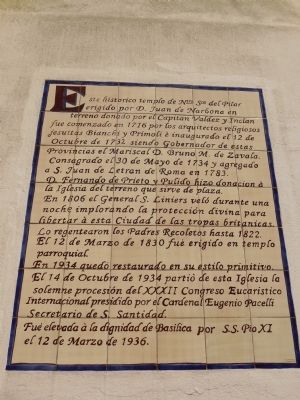 Este historico templo de Ntra Sra del Pilar
erigido por D. Juan de Narbona en
terreno donado por el Capitan Valdez y Inclan
fue comenzado en 1716 por los arquitectos religiosos
jesuitas Bianchi y Primoli è inaugurado el 12 de
Octubre de 1732 siendo Gobernador de estas
Provincias el Mariscal D. Bruno M. de Zavala.
Consagrado el 30 de Mayo de 1734 y agregado
a S. Juan de Letran de Roma en 1783.
D. Fernando de Prieto y Pulido hizo donacion à
la Iglesia del terreno que sirve de plaza.
En 1806 el General S. Liniers veló durante una
noche implorando la protección divina para
libertar á esta Ciudad de las tropas britanicas.
Lo regentearon los Padres Recoletos hasta 1822.
El 12 de Marzo de 1830 fué erigido en templo
parroquial.
En 1934 quedó restaurado en su estilo primitivo.
El 14 de Octubre de 1934 partiò de esta Iglesia la
solemne procesión del XXXII Congreso Eucaristico
Internacional presidido por el Cardenal Eugenio Pacelli
Secretario de S. Santidad.
Fué elevada à la dignidad de Basilica por S.S. Pio XI
el 12 de Marzo de 1936.